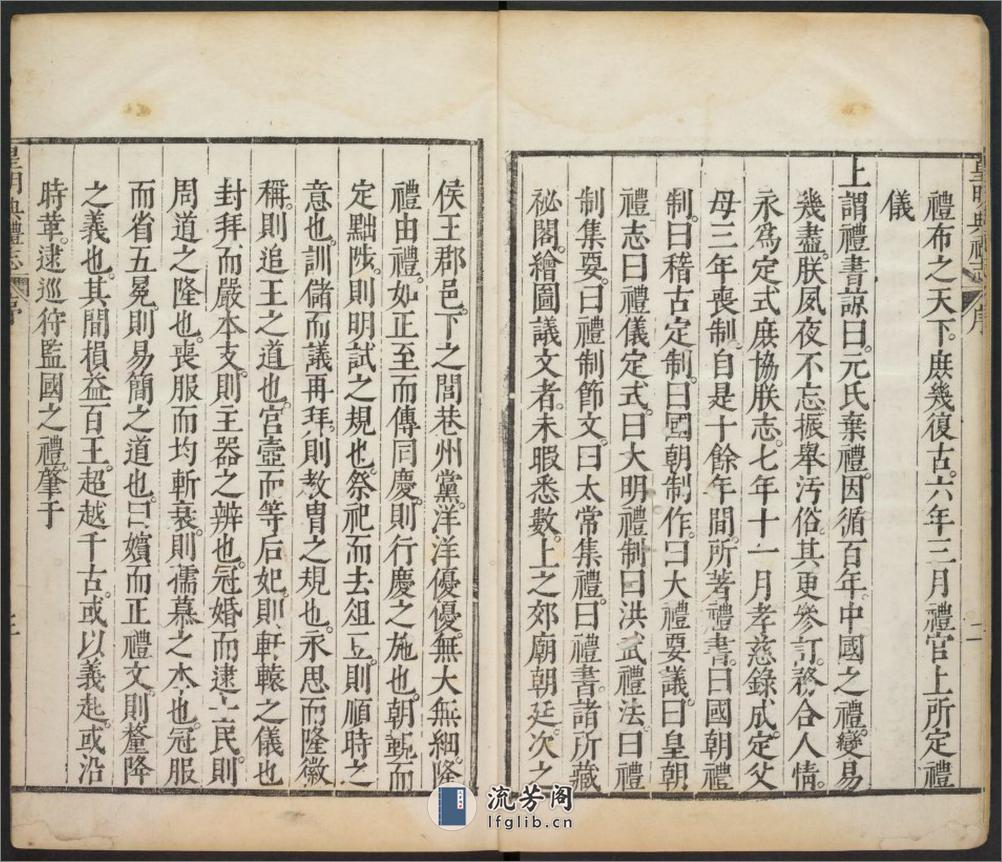 皇明典禮志 序
禮布之天下。庶幾復古。六年三月禮官上所定禮
儀
上謂禮書諒曰。元氏棄禮。因循百年。中國之禮。變易
幾盡。朕夙夜不忘振舉汚俗。其更參訂。務合人情。
永爲定式。庶協朕志。七年十一月孝慈錄成。定父
母三年喪制。自是十餘年間。所著禮書。曰國朝禮
制。曰稽古定制。曰國朝制作。曰大禮要議。曰皇朝
禮志曰禮儀定式。曰大明禮制曰洪武禮法曰禮
制集要。曰禮制節文。曰太常集禮。曰禮書。諸所藏
秘閣。繪圖議文者。未暇悉數。上之郊廟朝廷。次之
二
侯王郡邑。下之閭巷州黨。洋洋優優。無大無細。隆
禮由禮。如正至而傳同慶。則行慶之施也。朝覲而
定黜陟。則明試之規也。祭祀而去俎豆。則順時之
意也。訓儲而議再拜。則教胄之規也。永思而隆徽
稱。則追王之道也。宮壼而等后妃。則軒轅之儀也
封拜而嚴本支。則主器之辨也。冠婚而逮士民。則
周道之隆也。喪服而均斬衰。則孺慕之本也。冠服
而省五冕。則易簡之道也。曰嬪而正禮文。則釐降
之義也。其間損益百王。超越千古。或以義起。或沿
時革。逮巡狩監國之禮。肇于
皇明典禮志 序
流芳阁
lfglib.cn